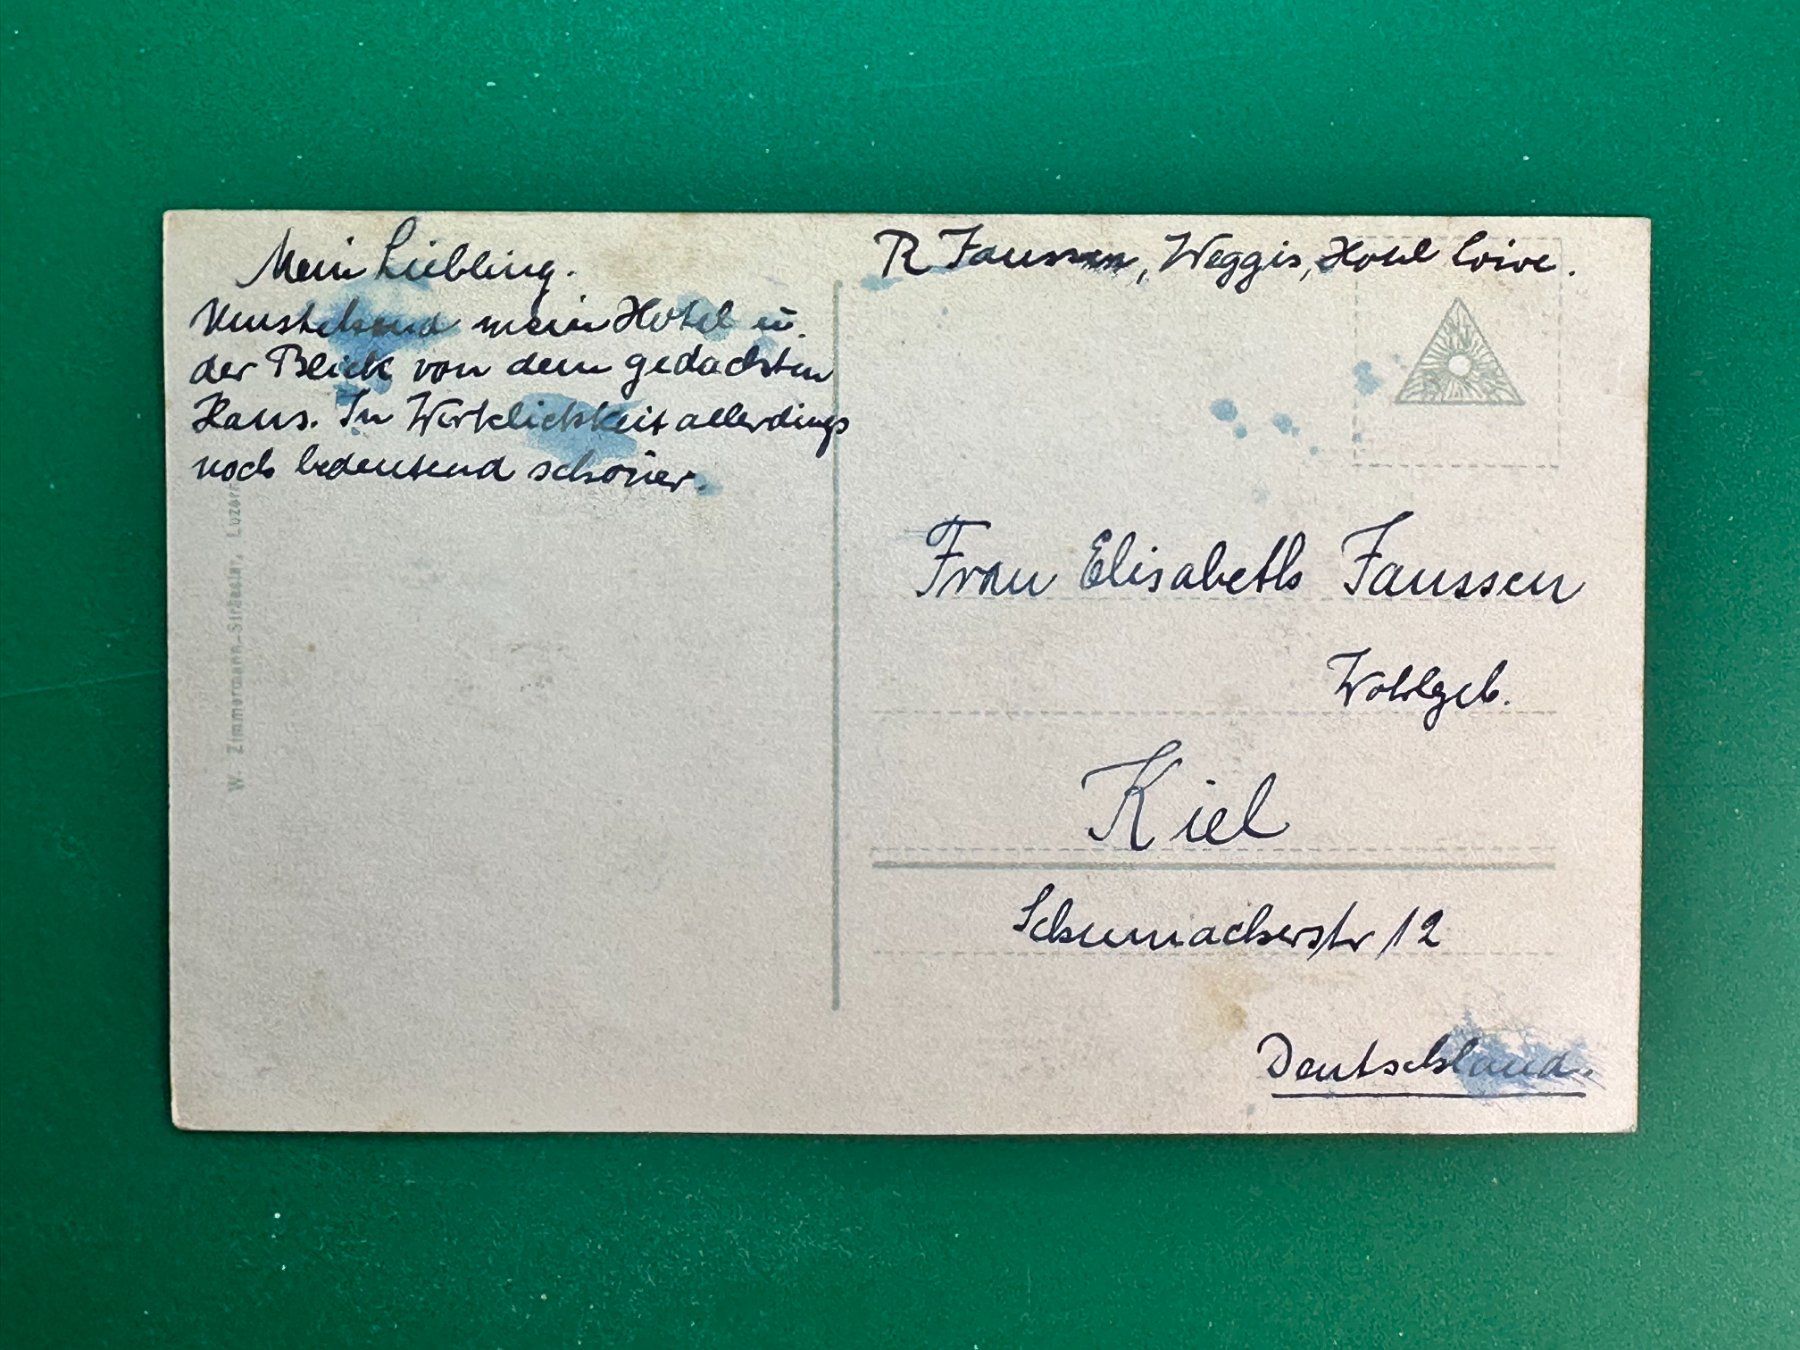 Mein Liebling.
Umstehend mein Hotel u.
der Blick von dem gedachten
Haus. In Wirklichkeit allerdings
noch bedeutend schöner.
W. Zimmermann-Strässle, Luzern
R Janssen, Weggis, Hotel Löwe.
Frau Elisabeth Janssen
Wohlgeb.
Kiel
Schumacherstr 12
Deutschland.